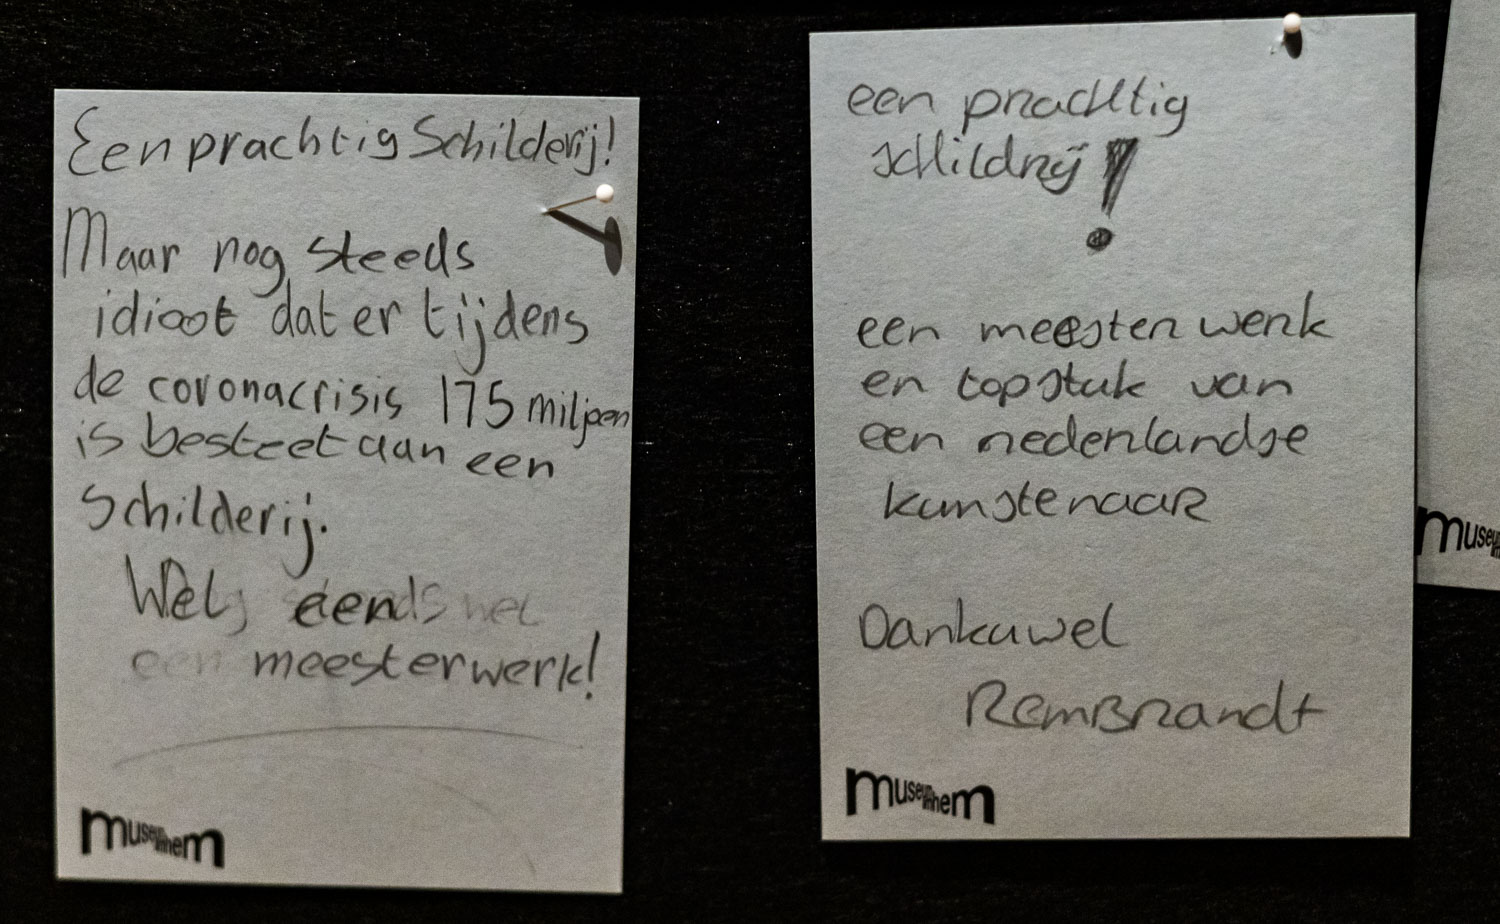 Een prachtig Schilderij!
Maar nog steeds
idioot dat er tijdens
de coronacrisis 175 miljoen
is besteet aan een
Schilderij.
Wel een
meesterwerk!
museum arnhem
een prachtig
schildrij!
een meesterwerk
en topstuk van
een nederlandse
kunstenaar
Dankuwel
Rembrandt
museum arnhem
museum